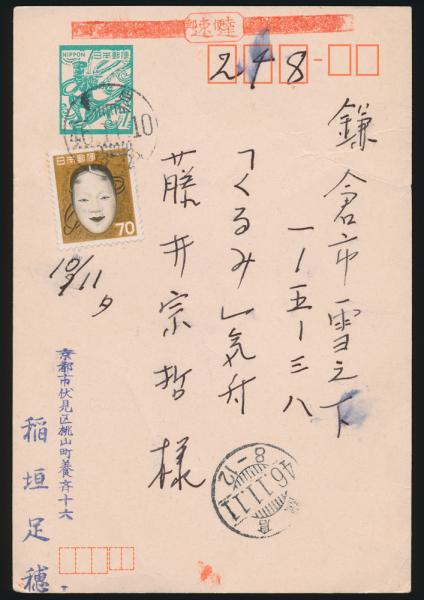 速達
248
NIPPON
日本郵便
7
日本郵便
70
鎌倉市雪之下
一ー五ー三八
「くるみ」気付
藤井宗哲様
10/11 夕
46.11.11
8-12
京都市伏見区桃山町養斉十六
稲垣足穂